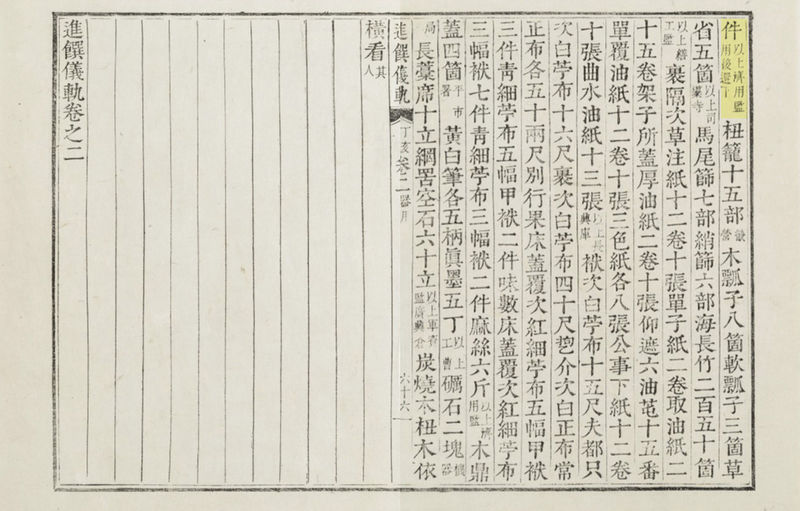 件以上濟用監用後還下杻籠十五部木瓢子八箇軟瓢子三箇草
省五箇以上司䆃寺馬尾篩七部綃篩六部海長竹二百五十箇
以上繕工監裹隔次草注紙十二卷十張單子紙二卷取油紙二
十五卷架子所蓋厚油紙二卷十張仰遮六油芚十五番
單覆油紙十二卷十張三色紙各八張公事下紙十二卷
十張曲水油紙十三張以上長興庫袱次白苧布十五尺夫都只
次白苧布十六尺裹次白苧布四十尺介次白正布常
正布各五十兩尺別行果床蓋覆次紅細苧布五幅甲袱
三件青細苧布五幅甲袱二件味數床蓋覆次紅細苧布
三幅袱七件青細苧布三幅袱二件麻絲六斤以上濟用監木鼎
蓋四箇平市署黃白筆各五柄眞墨五丁以上工曹礪石二塊機器
局長藁席十立網罟空石六十立以上軍資監廣興倉炭燒木杻木依
進饌儀軌 丁亥 卷二 器用 六十六
橫看其人
進饌儀軌卷之二